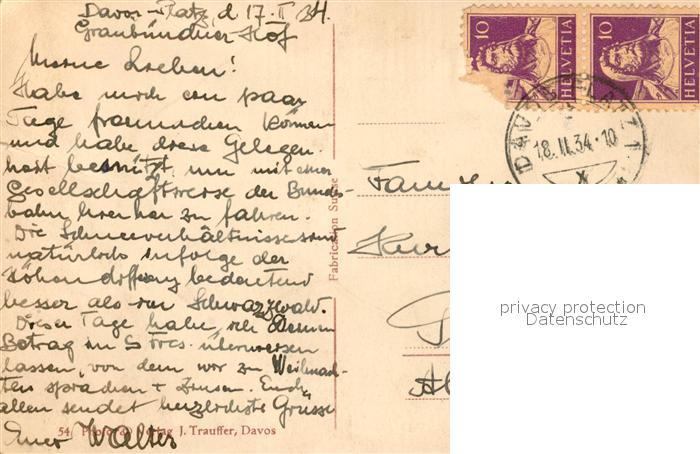 Davos-Platz, d. 17. II 34.
Graubündner Hof
Meine Lieben!
Habe mich ein paar
Tage freimachen können
und habe diese Gelegen-
heit benützt, um mit einer
Gesellschaftsreise der Bundes-
bahn hierher zu fahren.
Die Schneeverhältnisse sind
natürlich infolge der
bedeutend
besser als im Schwarzwald.
Dieser Tage habe ich
Betrag in überweisen
lassen, von dem wir zu Weihnach-
ten sprachen + Zinsen. Euch
allen sendet herzlichste Grüsse
Euer Walter
54 Photo & Verlag J. Trauffer, Davos
Fabrication Suisse
10 HELVETIA
10 HELVETIA
DAVOS-PLATZ 1
18.II.34-10
X
privacy protection
Datenschutz